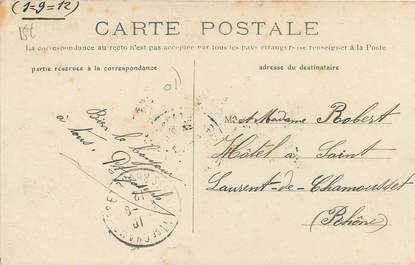 (1=9=12)
CARTE POSTALE
La correspondance au recto n'est pas acceptée par tous les pays étrangers (se renseigner à la Poste
partie réservée à la correspondance
adresse du destinataire
Bien le bonjour
à tous.
M. et Madame Robert
Hôtel à Saint
Laurent-de-Chamousset
(Rhône)